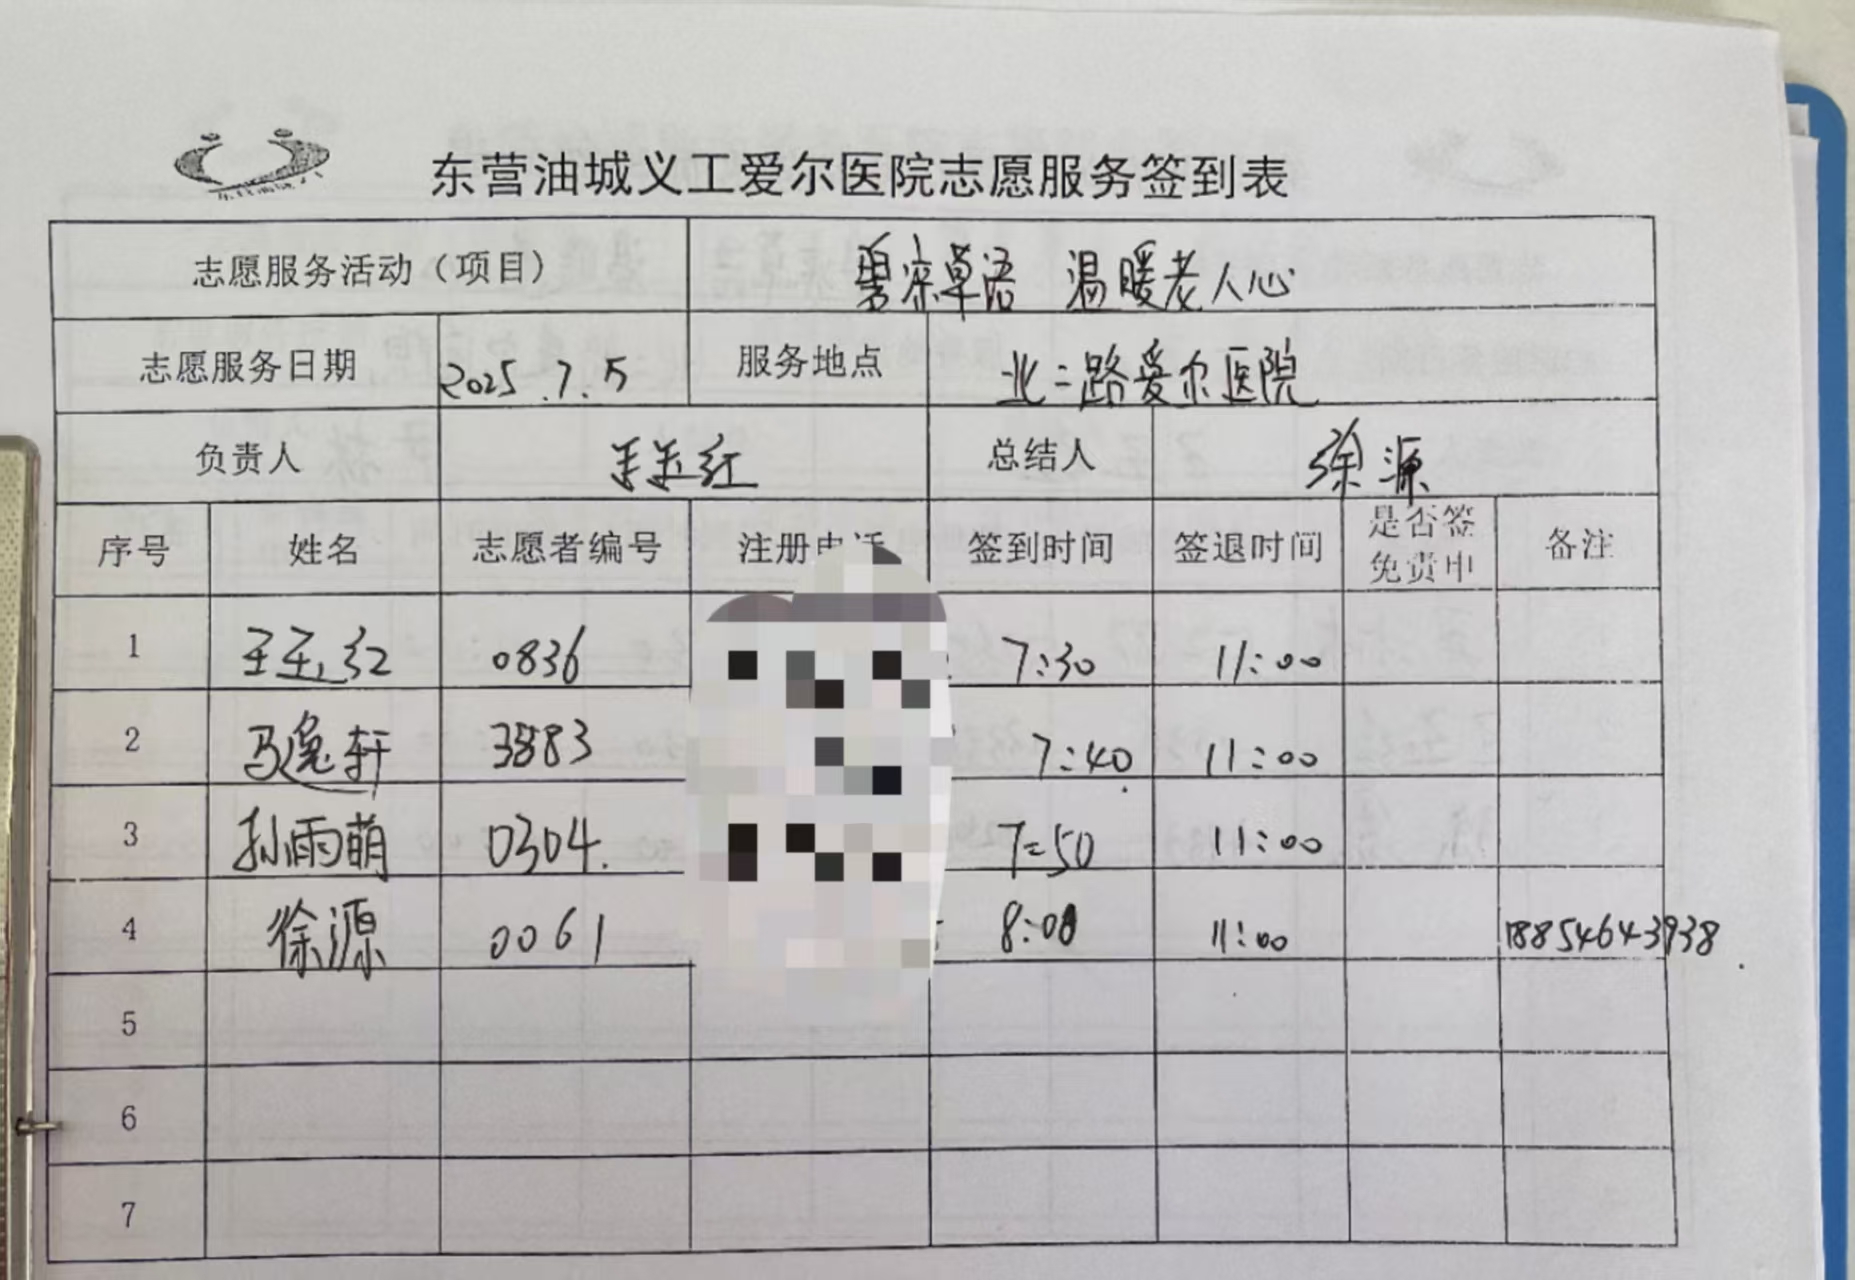 东营油城义工爱尔医院志愿服务签到表
志愿服务活动（项目） 碧深草语 温暖老人心
志愿服务日期 2025.7.5 服务地点 北二路爱尔医院
负责人 王玉红 总结人 徐源
序号 姓名 志愿者编号 注册电话 签到时间 签退时间 是否签免责申 备注
1 王玉红 0836 7:30 11:00
2 马逸轩 3883 7:40 11:00
3 孙雨萌 0304. 7:50 11:00
4 徐源 0061 8:00 11:00 18854643938
5
6
7